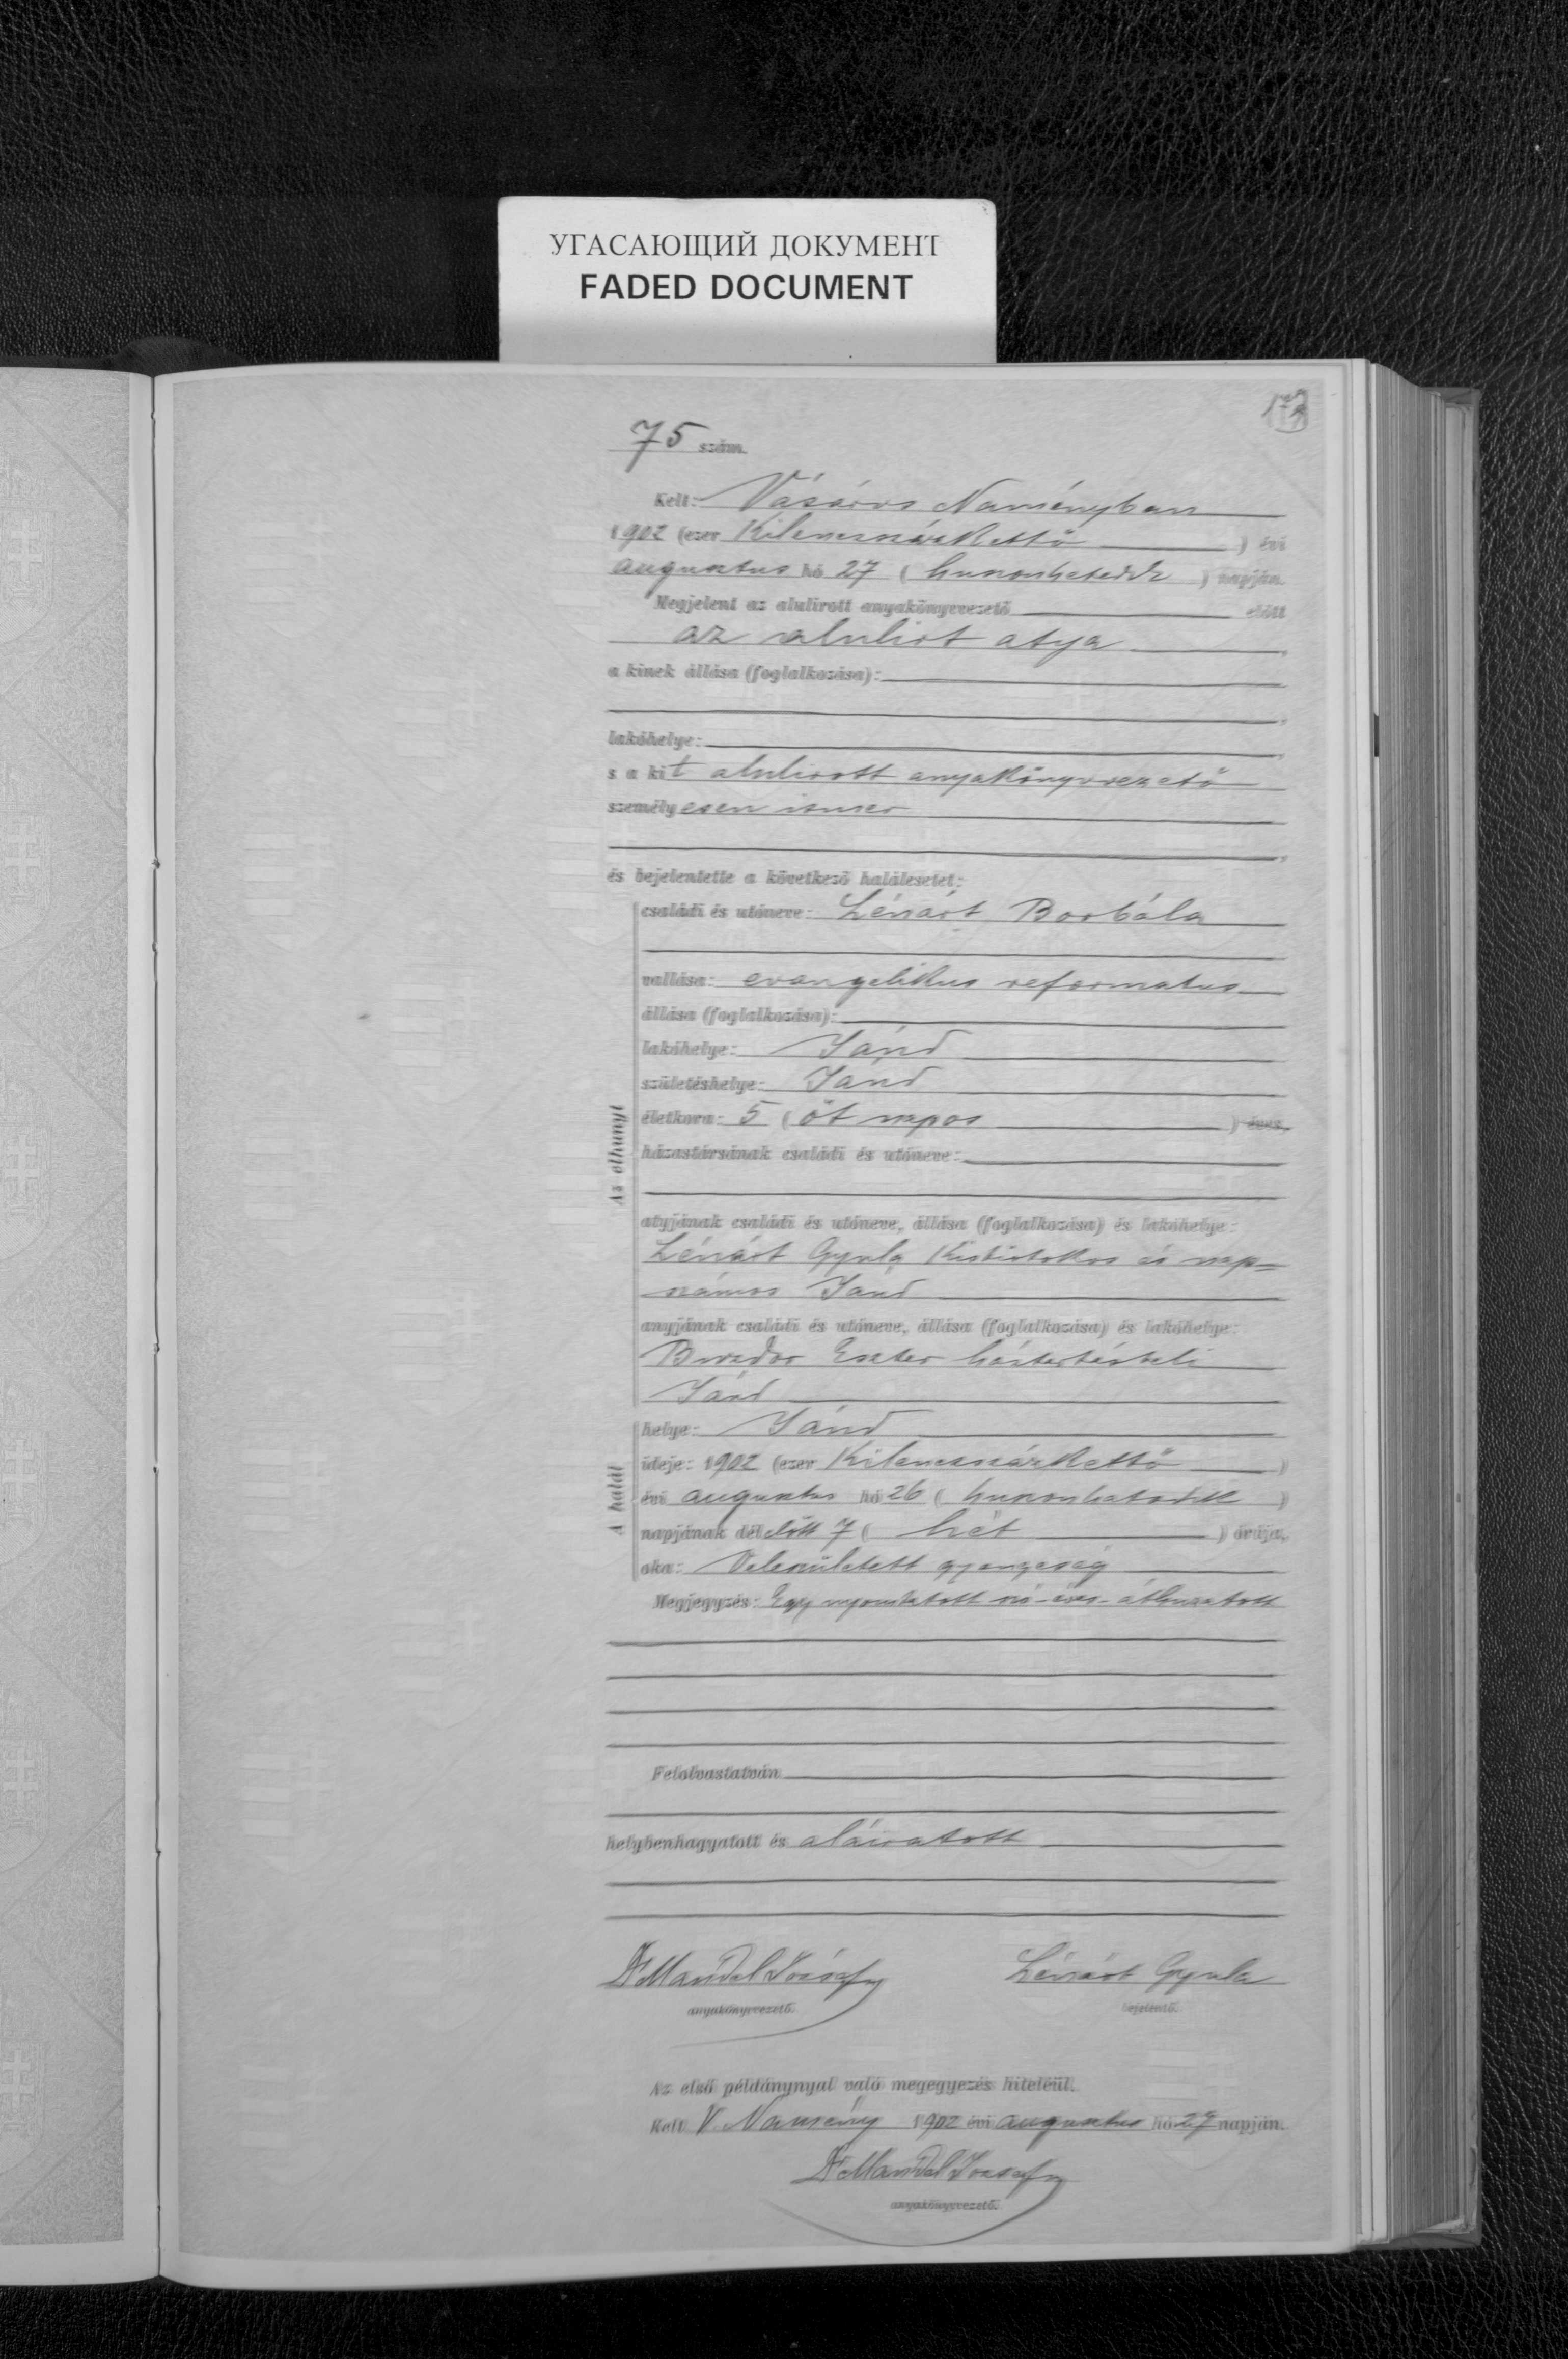 УГАСАЮЩИЙ ДОКУМЕНТ
FADED DOCUMENT
75 szám.
Kelt: Vásáros Naményban
1902 (ezer kilencszázkettő ) évi
augusztus hó 27 ( huszonhetedik ) napján.
Megjelent az alulirott anyakönyvvezető előtt
az alulirt atya ,
a kinek állása (foglalkozása):
lakóhelye:
s a kit alulirott anyakönyvvezető
személyesen ismer
és bejelentette a következő halálesetet:
Az elhunyt
családi és utóneve: Lénárt Borbála
vallása: evangelikus reformatus
állása (foglalkozása):
lakóhelye: Jánd
születéshelye: Jánd
életkora: 5 ( öt napos ) éves,
házastársának családi és utóneve:
atyjának családi és utóneve, állása (foglalkozása) és lakóhelye:
Lénárt Gyula kisbirtokos és nap=
számos Jánd
anyjának családi és utóneve, állása (foglalkozása) és lakóhelye:
Eszter háztartásbeli
Jánd
A halál
helye: Jánd
ideje: 1902 (ezer kilencszázkettő )
évi augusztus hó 26 ( huszonhatodik )
napjának délelőtt 7 ( hét ) órája,
oka: Veleszületett gyengeség
Megjegyzés: Egy nyomtatott szó - éves - áthuzatott
Felolvastatván
helybenhagyatott és aláiratott
Dr Mandel József Lénárt Gyula
anyakönyvvezető. bejelentő.
Az első példánynyal való megegyezés hiteléül.
Kelt V. Namény 1902 évi augusztus hó 27 napján.
Dr Mandel József
anyakönyvvezető.